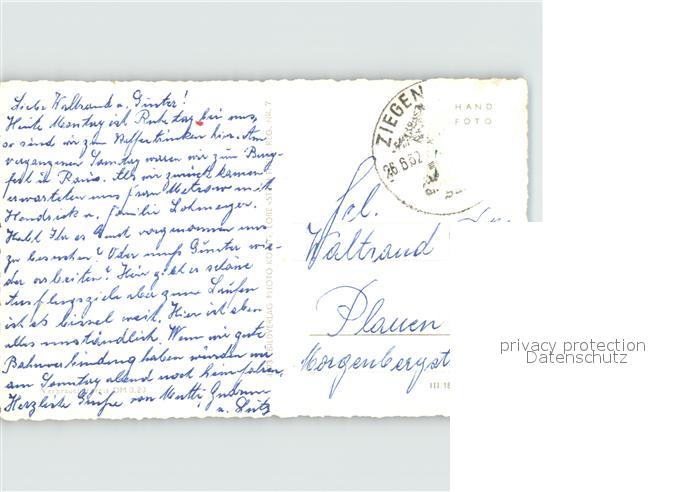 Liebe Waltraud u. Günter!
Heute Montag ist Ruhetag bei uns,
so sind wir zum Kaffeetrinken hier. Am
vergangenen Samstag waren wir zum Burg-
fest in Ranis. Als wir zurück kamen
erwarteten uns Frau Metzow mit
Hendrick u. Familie Lohmeyer.
Habt Ihr es Euch vorgenommen uns
zu besuchen? Oder muß Günter wie-
der arbeiten? Hier gibt es schöne
Ausflugsziele aber zum Laufen
ist es bissel weit. Hier ist eben
alles umständlich. Wenn wir gute
Bahnverbindung haben würden wir
am Samstag abend noch heimfahren.
Herzliche Grüße von Mutti, Gudrun
u. Lutz
DM 0,23
ZIEGEN
26.6.62
HAND
FOTO
Waltraud
Plauen
Morgenbergst
III/18
privacy protection
Datenschutz